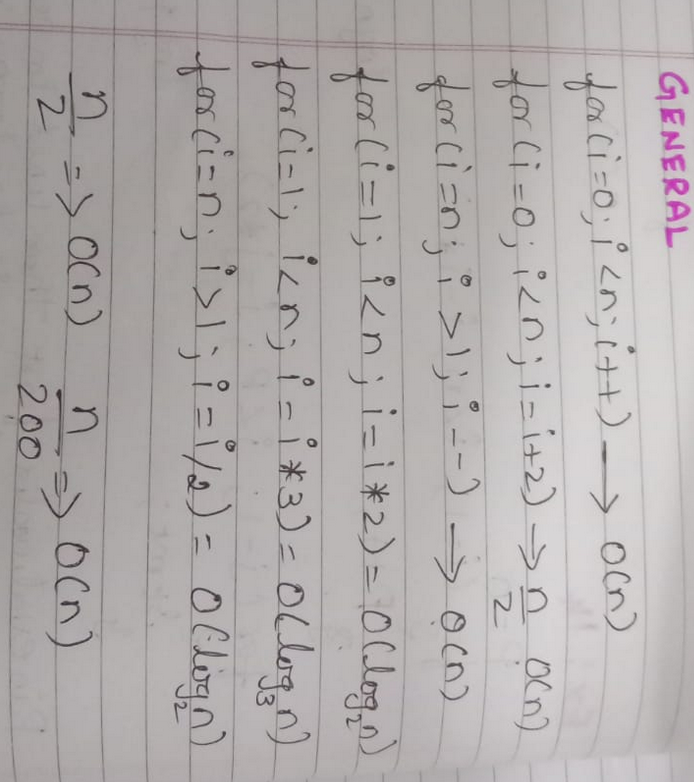 GENERAL
for(i=0; i<n; i++) → O(n)
for(i=0; i<n; i=i+2) → n/2 O(n)
for(i=n; i>1; i--) → O(n)
for(i=1; i<n; i=i*2) = O(log₂n)
for(i=1; i<n; i=i*3) = O(log₃n)
for(i=n; i>1; i=i/2) = O(log₂n)
n/2 => O(n) n/200 => O(n)